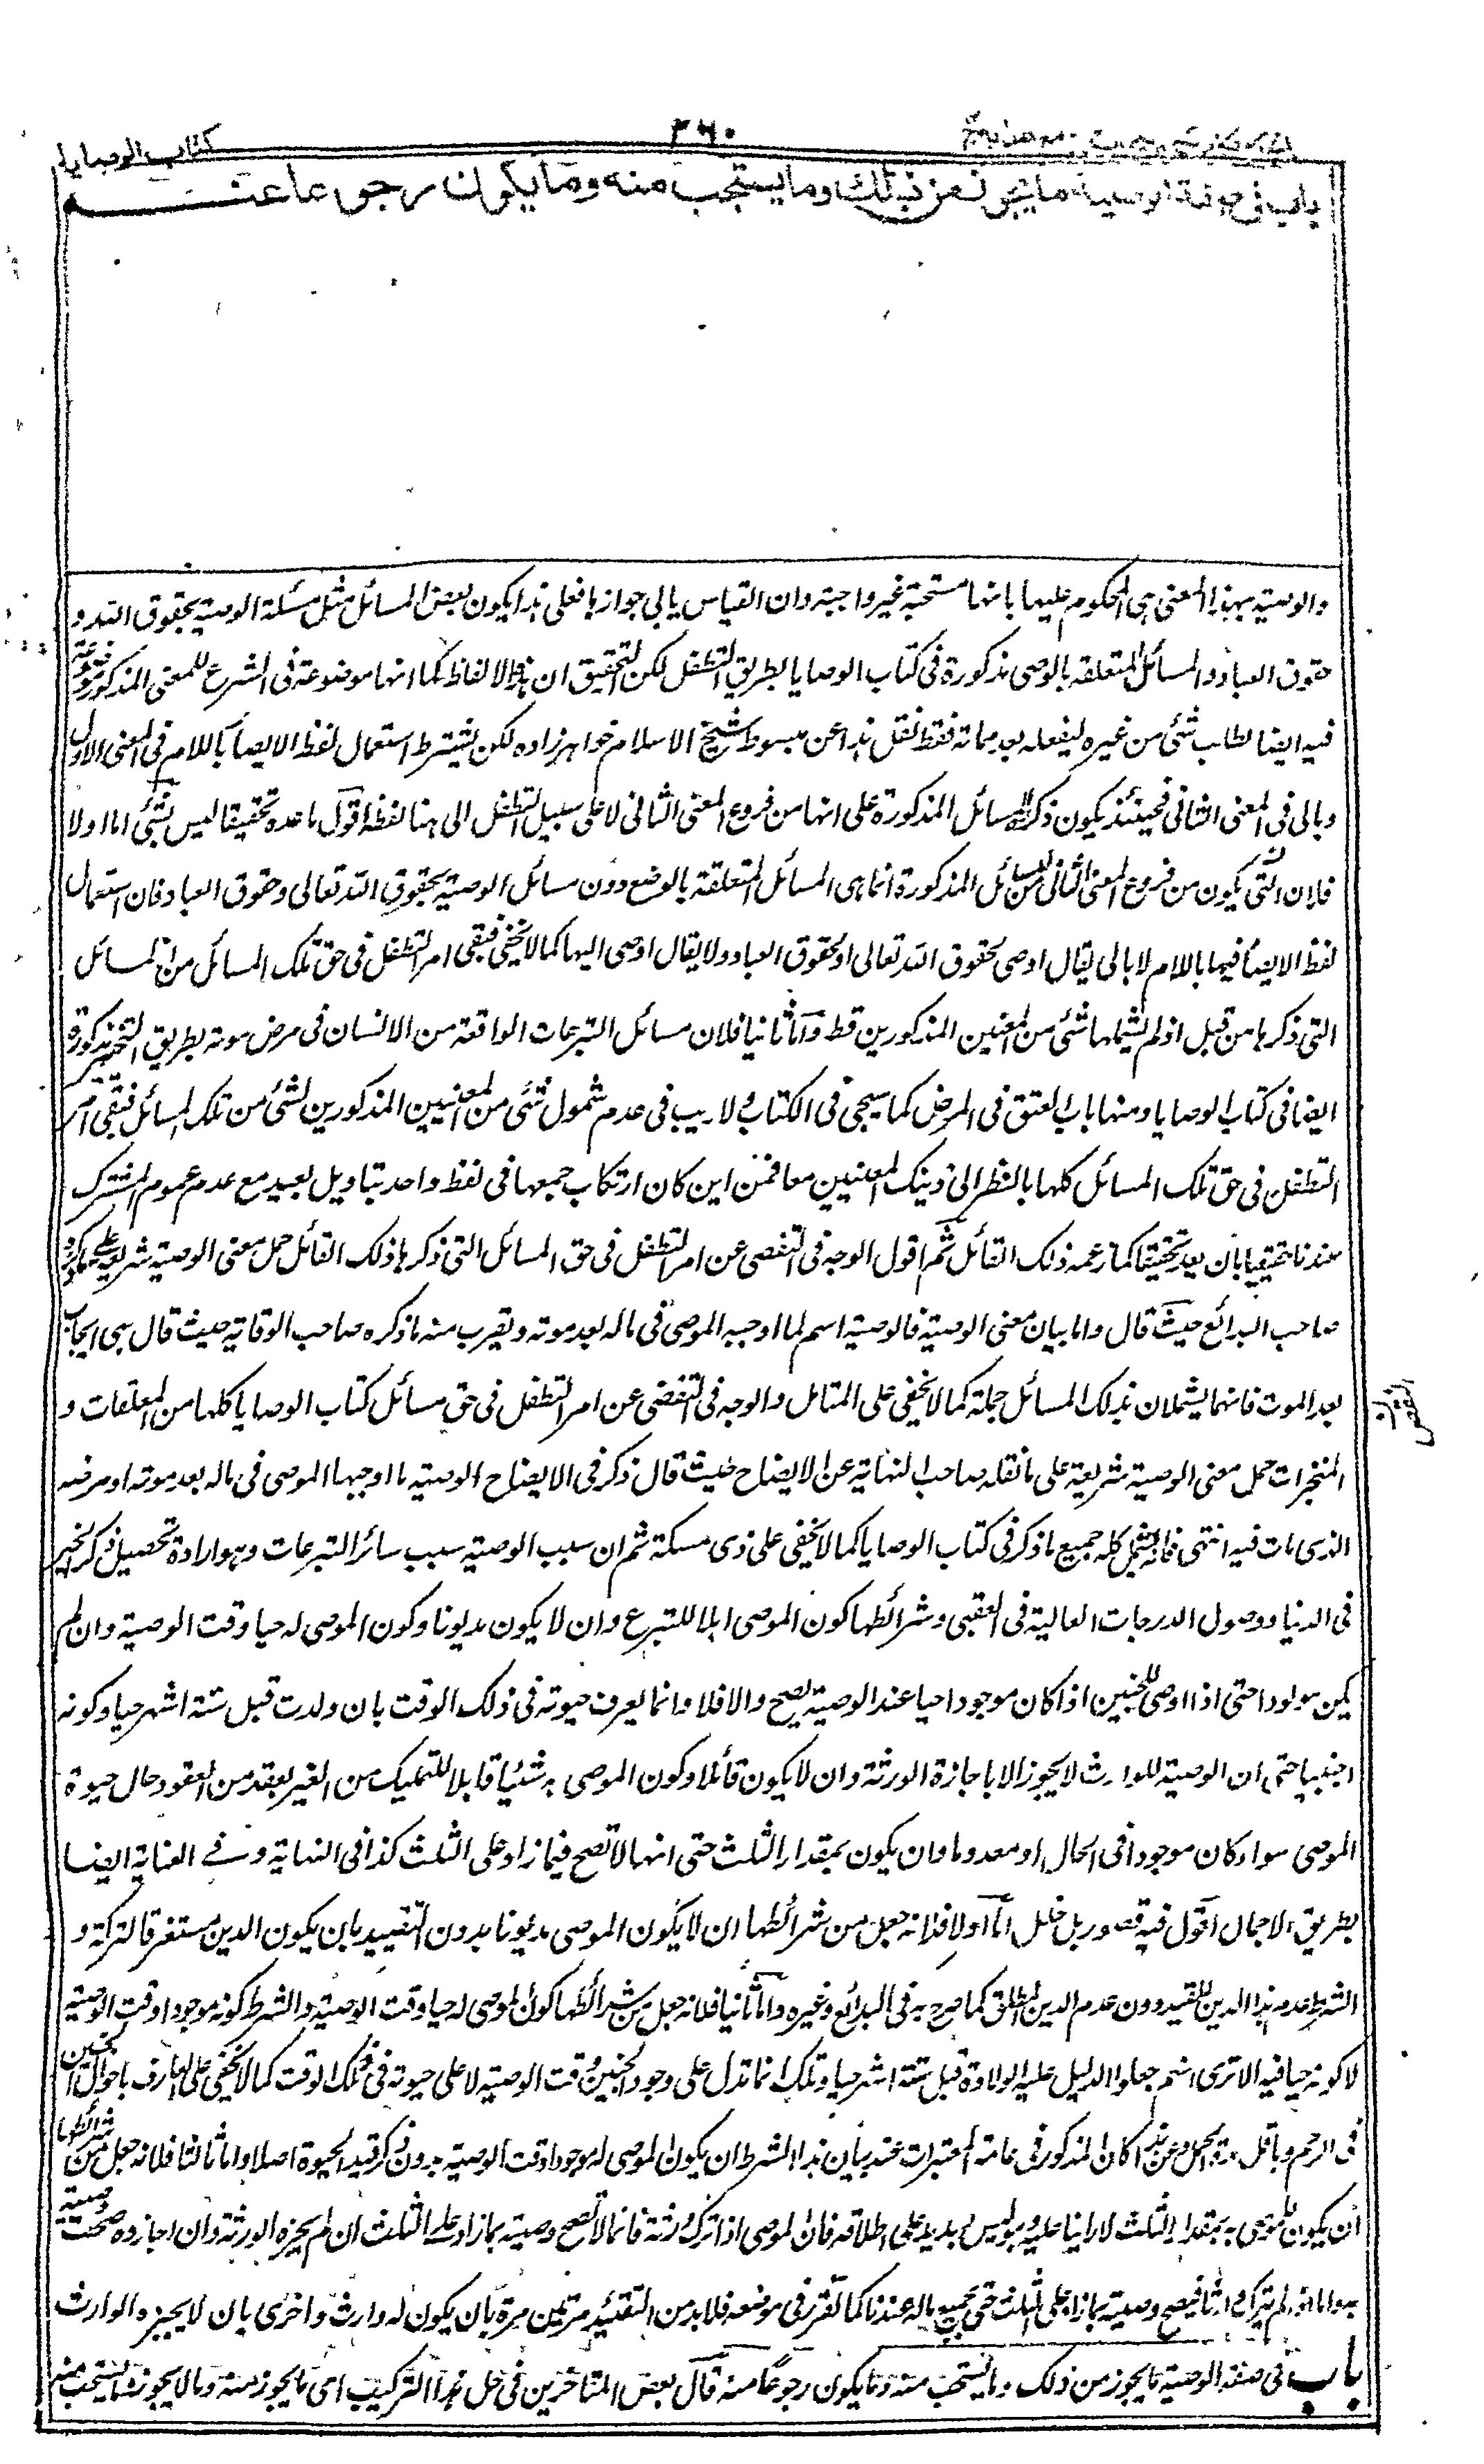 كتاب الوصايا
٣٦٠
باب في صفة الوصية ما يجوز من ذلك وما يستحب منه وما يكون رجوعا عنه
والوصية بهذا المعنى هى المحكوم عليها بانها مستحبة غير واجبة وان القياس يابى جوازها فعلى هذا يكون بعض المسائل مثل مسئلة الوصية بحقوق الله و
حقوق العباد والمسائل المتعلقة بالوصى مذكورة فى كتاب الوصايا بطريق التطفل لكن التحقيق ان هذه الالفاظ كما انها موضوعة فى الشرع للمعنى المذكور موضوعة
فيه ايضا لطلب شئ من غيره ليفعله بعد مماته فقط نقل هذا عن مبسوط شيخ الاسلام خواهر زاده لكن يشترط استعمال لفظ الايصاء باللام فى المعنى الاول
وبالى فى المعنى الثانى فحينئذ يكون ذكر المسائل المذكورة على انها من فروع المعنى الثانى لا على سبيل التطفل الى هنا لفظه اقول ما عده تحقيقا ليس بشئ اما اولا
فلان التى يكون من فروع المعنى الثانى من المسائل المذكورة انما هى المسائل المتعلقة بالوضع دون مسائل الوصية بحقوق الله تعالى وحقوق العباد فان استعمال
لفظ الايصاء فيها باللام لا بالى يقال اوصى بحقوق الله تعالى او بحقوق العباد ولا يقال اوصى اليها كما لا يخفى فبقى امر التطفل فى حق تلك المسائل من المسائل
التى ذكرها من قبل اذ لم يشملها شئ من المعنيين المذكورين قط واما ثانيا فلان مسائل التبرعات الواقعة من الانسان فى مرض موته بطريق التنجيز مذكورة
ايضا فى كتاب الوصايا ومنها باب العتق فى المرض كما سيجى فى الكتاب ولا ريب فى عدم شمول شئ من المعنيين المذكورين لشئ من تلك المسائل فبقى امر
التطفل فى حق تلك المسائل كلها بالنظر الى ذينك المعنيين معا فمن اين كان ارتكاب جمعها فى لفظ واحد بتاويل بعيد مع عدم عموم المشترك
عندنا حقيقيا بان يعد تحقيقا كما زعمه ذلك القائل ثم اقول الوجه فى التفصى عن امر التطفل فى حق المسائل التى ذكرها ذلك القائل حمل معنى الوصية شريعة على ما ذكره
صاحب البدائع حيث قال واما بيان معنى الوصية فالوصية اسم لما اوجبه الموصى فى ماله بعد موته ويقرب منه ما ذكره صاحب الوقاية حيث قال هى ايجاب
بعد الموت فانهما يشملان تلك المسائل جملة كما لا يخفى على المتامل والوجه فى التفصى عن امر التطفل فى حق مسائل كتاب الوصايا كلها من المعلقات و
المنجزات حمل معنى الوصية شريعة على ما نقله صاحب النهاية عن الايضاح حيث قال ذكر فى الايضاح الوصية ما اوجبها الموصى فى ماله بعد موته او مرضه
الذى مات فيه انتهى فانه يشمل كله جميع ما ذكر فى كتاب الوصايا كما لا يخفى على ذى مسكة ثم ان سبب الوصية سبب سائر التبرعات وهو ارادة تحصيل ذكر الخير
فى الدنيا ووصول الدرجات العالية فى العقبى وشرائطها كون الموصى اهلا للتبرع وان لا يكون مديونا وكون الموصى له حيا وقت الوصية وان لم
يكن مولودا حتى اذا اوصى للجنين اذا كان موجودا حيا عند الوصية يصح والا فلا وانما يعرف حيوته فى ذلك الوقت بان ولدت قبل ستة اشهر حيا وكونه
اجنبيا حتى ان الوصية للوارث لا يجوز الا باجازة الورثة وان لا يكون قاتلا وكون الموصى به شيئا قابلا للتمليك من الغير بعقد من العقود حال حيوة
الموصى سواء كان موجودا فى الحال او معدوما وان يكون بمقدار الثلث حتى انها لا تصح فيما زاد على الثلث كذا فى النهاية وفى العناية ايضا
بطريق الاجمال اقول فيه قصور بل خلل اما اولا فلانه جعل من شرائطها ان لا يكون الموصى مديونا بدون التقييد بان يكون الدين مستغرقا لتركته و
الشرط عدم هذا الدين المقيد دون عدم الدين المطلق كما صرح به فى البدائع وغيره واما ثانيا فلانه جعل من شرائطها كون الموصى له حيا وقت الوصية والشرط كونه موجودا وقت الوصية
لا كونه حيا فيه الا ترى انهم جعلوا الدليل عليه الولادة قبل ستة اشهر حيا وتلك انما تدل على وجود الجنين وقت الوصية لا على حيوته فى ذلك الوقت كما لا يخفى على العارف باحوال الجنين
فى الرحم وباقل مدة الحمل وعن هذا كان المذكور فى عامة المعتبرات عند بيان هذا الشرط ان يكون الموصى له موجودا وقت الوصية بدون ذكر قيد الحيوة اصلا واما ثالثا فلانه جعل من شرائطها
ان يكون الموصى به بمقدار الثلث لا زائدا عليه وهو ليس بسديد على اطلاقه فان الموصى اذا ترك ورثة فانما لا تصح وصيته بما زاد على الثلث ان لم يجزه الورثة وان اجازوه صحت وصيته
به واما اذا لم يترك وارثا فيصح وصيته بما زاد على الثلث حتى بجميع ماله عندنا كما تقرر فى موضعه فلا بد من التقييد مرتين مرة بان يكون له وارث واخرى بان لا يجيزه الوارث
باب فى صفة الوصية ما يجوز من ذلك وما يستحب منه وما يكون رجوعا منه قال بعض المتاخرين فى حل هذا التركيب اى ما يجوز منه وما لا يجوز وما يستحب منه